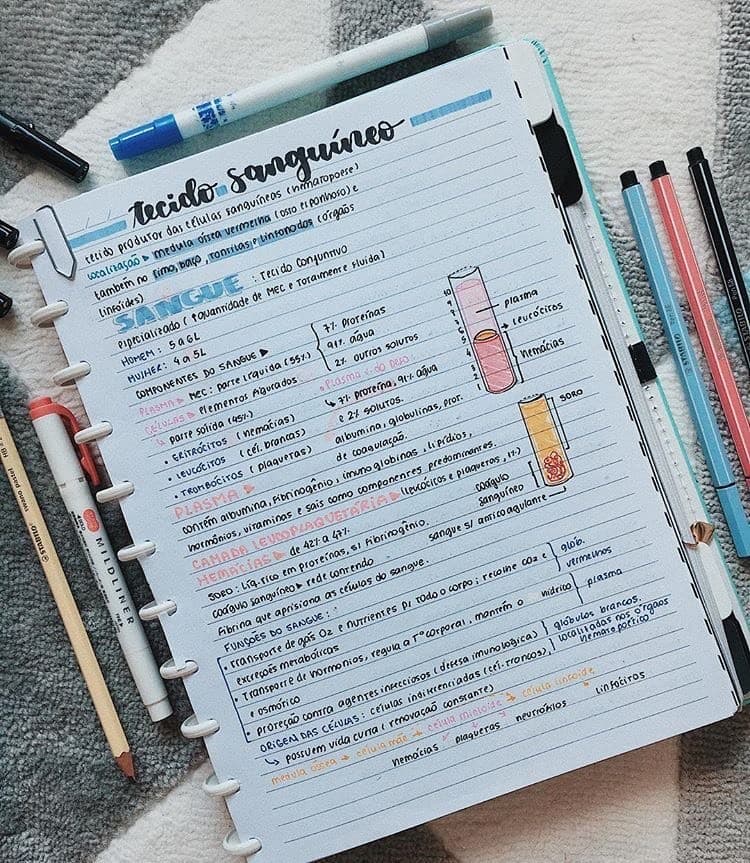 tecido sanguíneo
tecido produtor das células sanguíneas (hematopoese)
localização ▸ medula óssea vermelha (osso esponhoso) e
também no timo, baço, tonsilas e linfonodos (órgãos
linfoides)
SANGUE : Tecido conjuntivo
especializado (↑quantidade de MEC e totalmente fluida)
HOMEM : 5 a 6L
MULHER: 4 a 5L
COMPONENTES DO SANGUE ▸
7% proteínas
91% água
2% outros solutos
PLASMA ▸ MEC: parte líquida (55%)
CÉLULAS ▸ Elementos figurados
↳ parte sólida (45%)
• ERITRÓCITOS (hemácias)
• LEUCÓCITOS (cél. brancas)
• TROMBÓCITOS (plaquetas)
↳ 7% proteína, 91% água
e 2% solutos.
albumina, globulinas, prot.
de coagulação.
plasma
leucócitos
hemácias
SORO
coágulo
sanguíneo
sangue s/ anticoagulante
PLASMA ▸
contém albumina, fibrinogênio, imunoglobinas, lipídios,
hormônios, vitaminas e sais como componentes predominantes.
CAMADA LEUCOPLAQUETÁRIA ▸ leucócitos e plaquetas, 1%)
HEMÁCIAS ▸ de 42% a 47%
SORO: líq. rico em proteínas, s/ fibrinogênio.
coágulo sanguíneo ▸ rede contendo
fibrina que aprisiona as células do sangue.
FUNÇÕES DO SANGUE:
• Transporte de gás O2 e nutrientes p/ todo o corpo; recolhe CO2 e
excreções metabólicas
glób.
vermelhos
• Transporte de hormônios, regula a Tº corporal, mantém o hídrico
e osmótico
plasma
• proteção contra agentes infecciosos (defesa imunológica)
glóbulos brancos.
ORIGEM DAS CÉLULAS: células indiferenciadas (cél. troncos),
localizadas nos órgãos
hematopoético
↳ possuem vida curta (renovação constante)
medula óssea → célula mãe → célula mieloide → célula linfoide
hemácias plaquetas neutrófilos linfócitos
STABILO
MILDLINER
STABILO